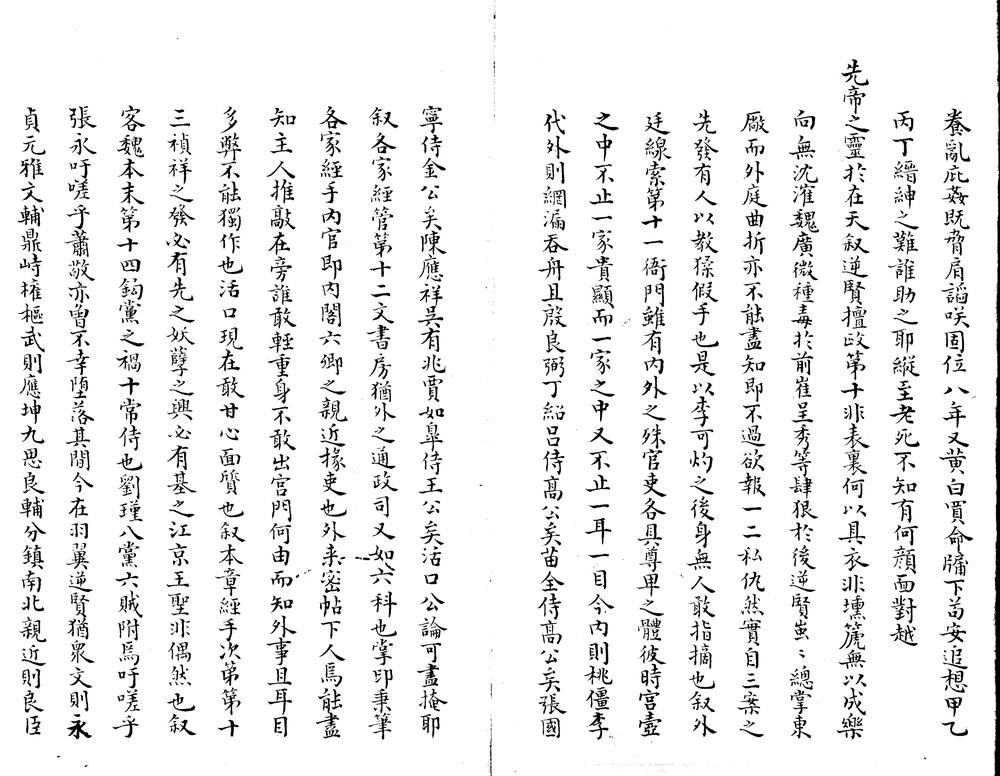 養亂庇姦既脅肩謟咲固位八年又黄白買命牖下苟安追想甲乙
丙丁縉紳之難誰助之耶縱至老死不知有何顔面對越
先帝之靈於在天叙逆賢擅政第十非表裏何以具衣非壎篪無以成樂
向無沈㴶魏廣微種毒於前崔呈秀等肆狠於後逆賢蚩〻總掌東
厰而外庭曲折亦不能盡知即不過欲報一二私仇然實自三案之
先發有人以教猱假手也是以李可灼之後身無人敢指摘也叙外
廷線索第十一衙門雖有内外之殊官吏各具尊卑之體彼時宫壼
之中不止一家貴顯而一家之中又不止一耳一目今内則桃僵李
代外則網漏吞舟且殷良弼丁紹吕侍髙公矣苗全侍髙公矣張國
寧侍金公矣陳應祥吴有兆賈如臯侍王公矣活口公論可盡掩耶
叙各家經管第十二文書房猶外之通政司又如六科也掌印秉筆
各家經手内官即内閣六卿之親近掾吏也外来密帖下人焉能盡
知主人推敲在旁誰敢輕重身不敢出宫門何由而知外事且耳目
多弊不能獨作也活口現在敢甘心面質也叙本章經手次第第十
三禎祥之發必有先之妖孽之興必有基之江京王聖非偶然也叙
客魏本末第十四鈎黨之禍十常侍也劉瑾八黨六賊附焉吁嗟乎
張永吁嗟乎蕭敬亦曾不幸堕落其間今在羽翼逆賢猶衆文則永
貞元雅文輔鼎峙權樞武則應坤九思良輔分鎮南北親近則良臣